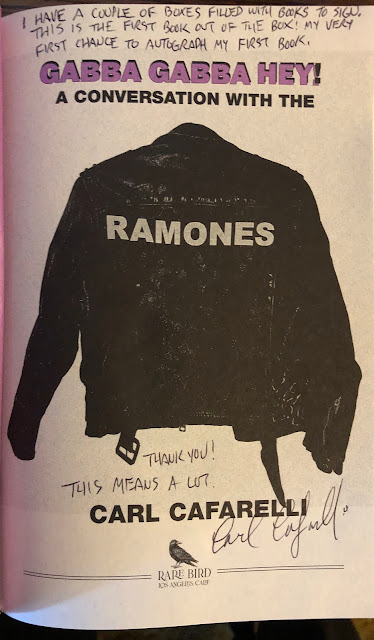 I HAVE A COUPLE OF BOXES FILLED WITH BOOKS TO SIGN.
THIS IS THE FIRST BOOK OUT OF THE BOX! MY VERY
FIRST CHANCE TO AUTOGRAPH MY FIRST BOOK.
GABBA GABBA HEY!
A CONVERSATION WITH THE
RAMONES
THANK YOU!
THIS MEANS A LOT.
CARL CAFARELLI
Carl Cafarelli
RARE BIRD
LOS ANGELES, CALIF.